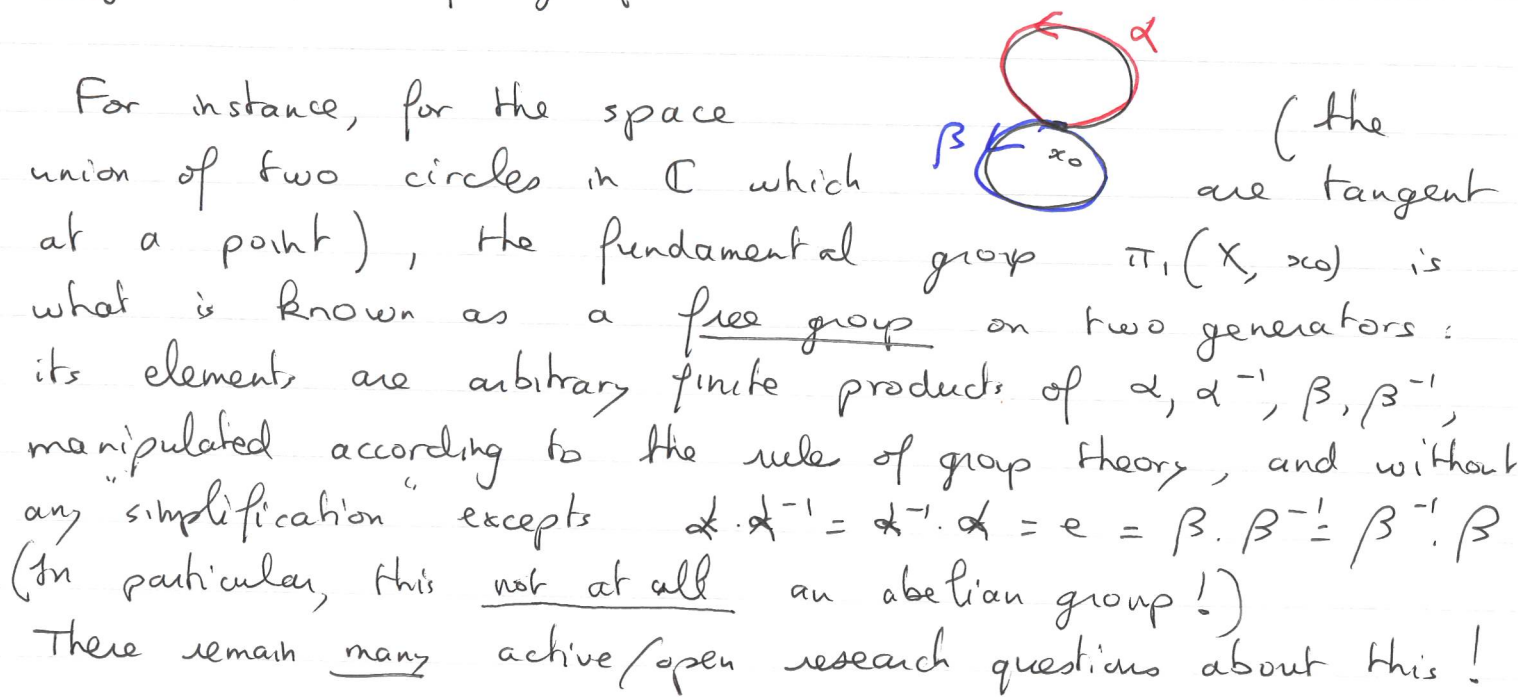 For instance, for the space α (the
union of two circles in ℂ which β x₀ are tangent
at a point), the fundamental group π₁(X, x₀) is
what is known as a free group on two generators:
its elements are arbitrary finite products of α, α⁻¹, β, β⁻¹,
manipulated according to the rule of group theory, and without
any "simplification" excepts α·α⁻¹ = α⁻¹·α = e = β·β⁻¹ = β⁻¹·β
(In particular, this not at all an abelian group!)
There remain many active/open research questions about this!